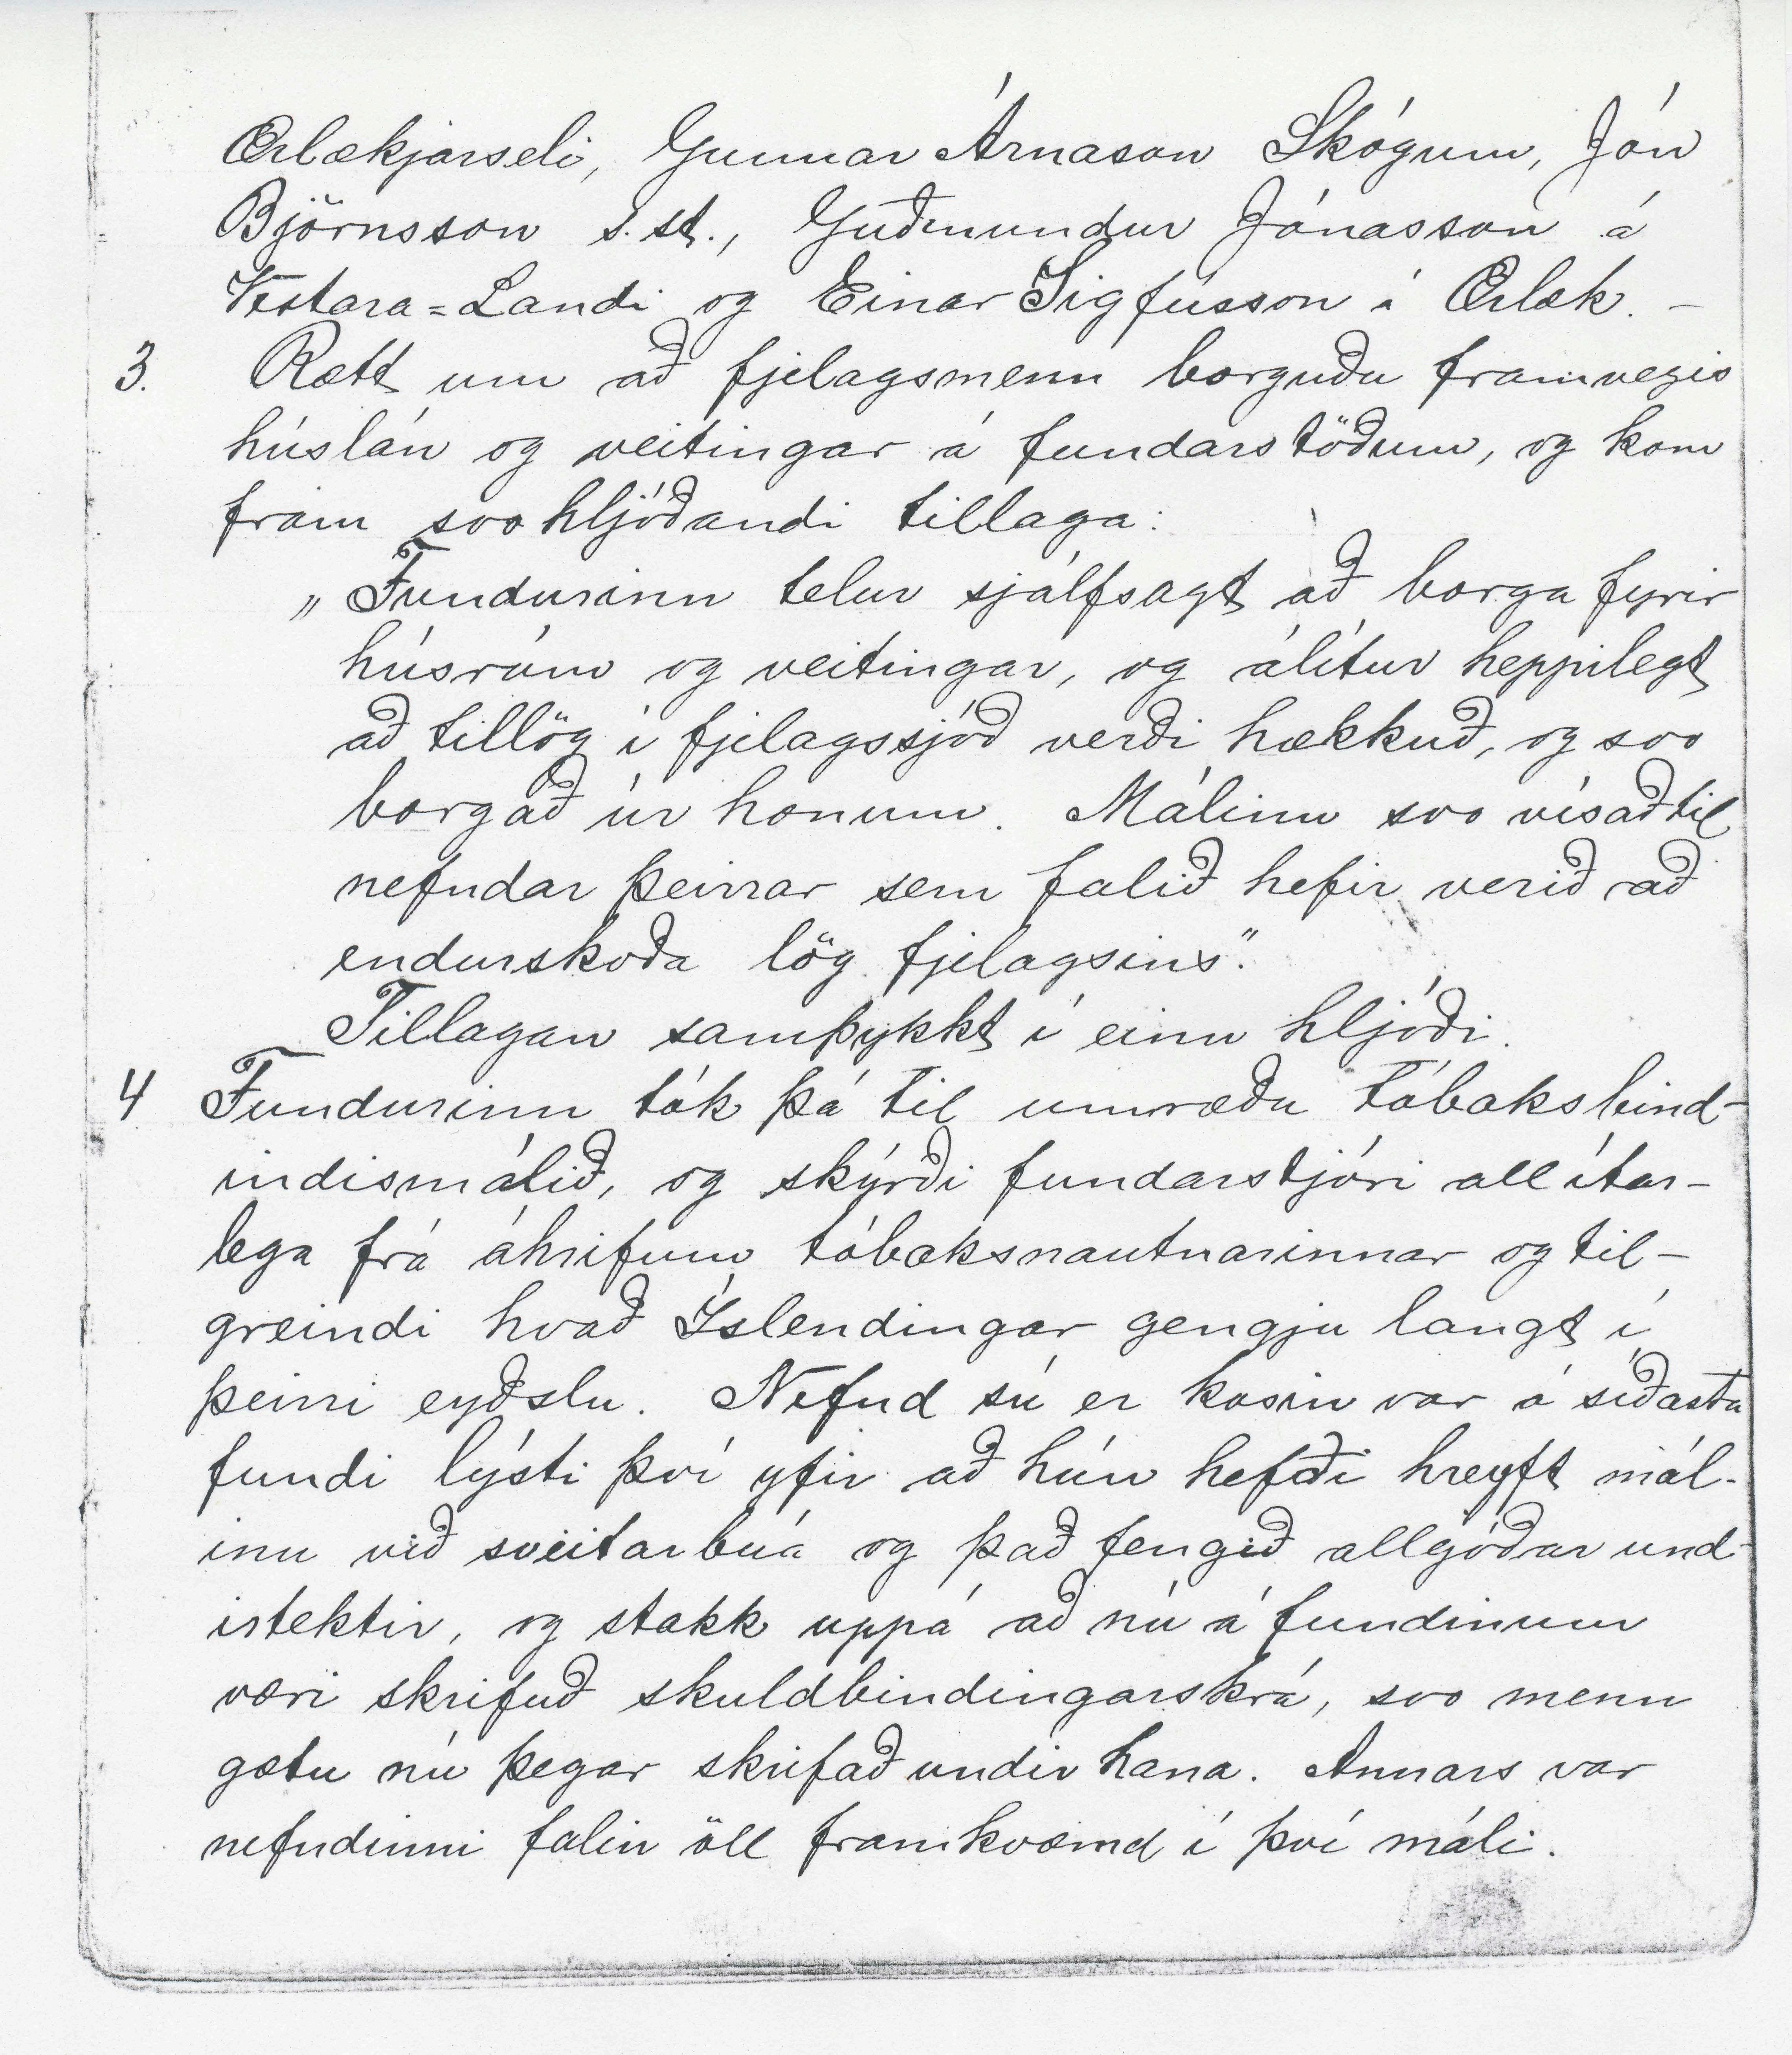 Ærlækjarseli, Gunnar Árnason Skógum, Jón
Björnsson s.st., Guðmundur Jónasson á
Vestara=Landi og Einar Sigfússon í Ærlæk. –
3. Rætt um að fjelagsmenn borguðu framvegis
húslán og veitingar á fundarstöðum, og kom
fram svohljóðandi tillaga:
„Fundurinn telur sjálfsagt að borga fyrir
húsrúm og veitingar, og álítur heppilegt
að tillög í fjelagssjóð verði hækkuð, og svo
borgað úr honum. Málinu svo vísað til
nefndar þeirrar sem falið hefir verið að
endurskoða lög fjelagsins".
Tillagan samþykkt í einu hljóði.
4 Fundurinn tók þá til umræðu Tóbaksbind-
indismálið, og skýrði fundarstjóri all ítar-
lega frá áhrifum tóbaksnautnarinnar og til-
greindi hvað Íslendingar gengju langt í
þeirri eyðslu. Nefnd sú er kosin var á síðasta
fundi lýsti því yfir að hún hefði hreyft mál-
inu við sveitarbúa og það fengið allgóðar und-
irtektir, og stakk uppá að nú á fundinum
væri skrifuð skuldbindingarskrá, svo menn
gætu nú þegar skrifað undir hana. Annars var
nefndinni falin öll framkvæmd í því máli.